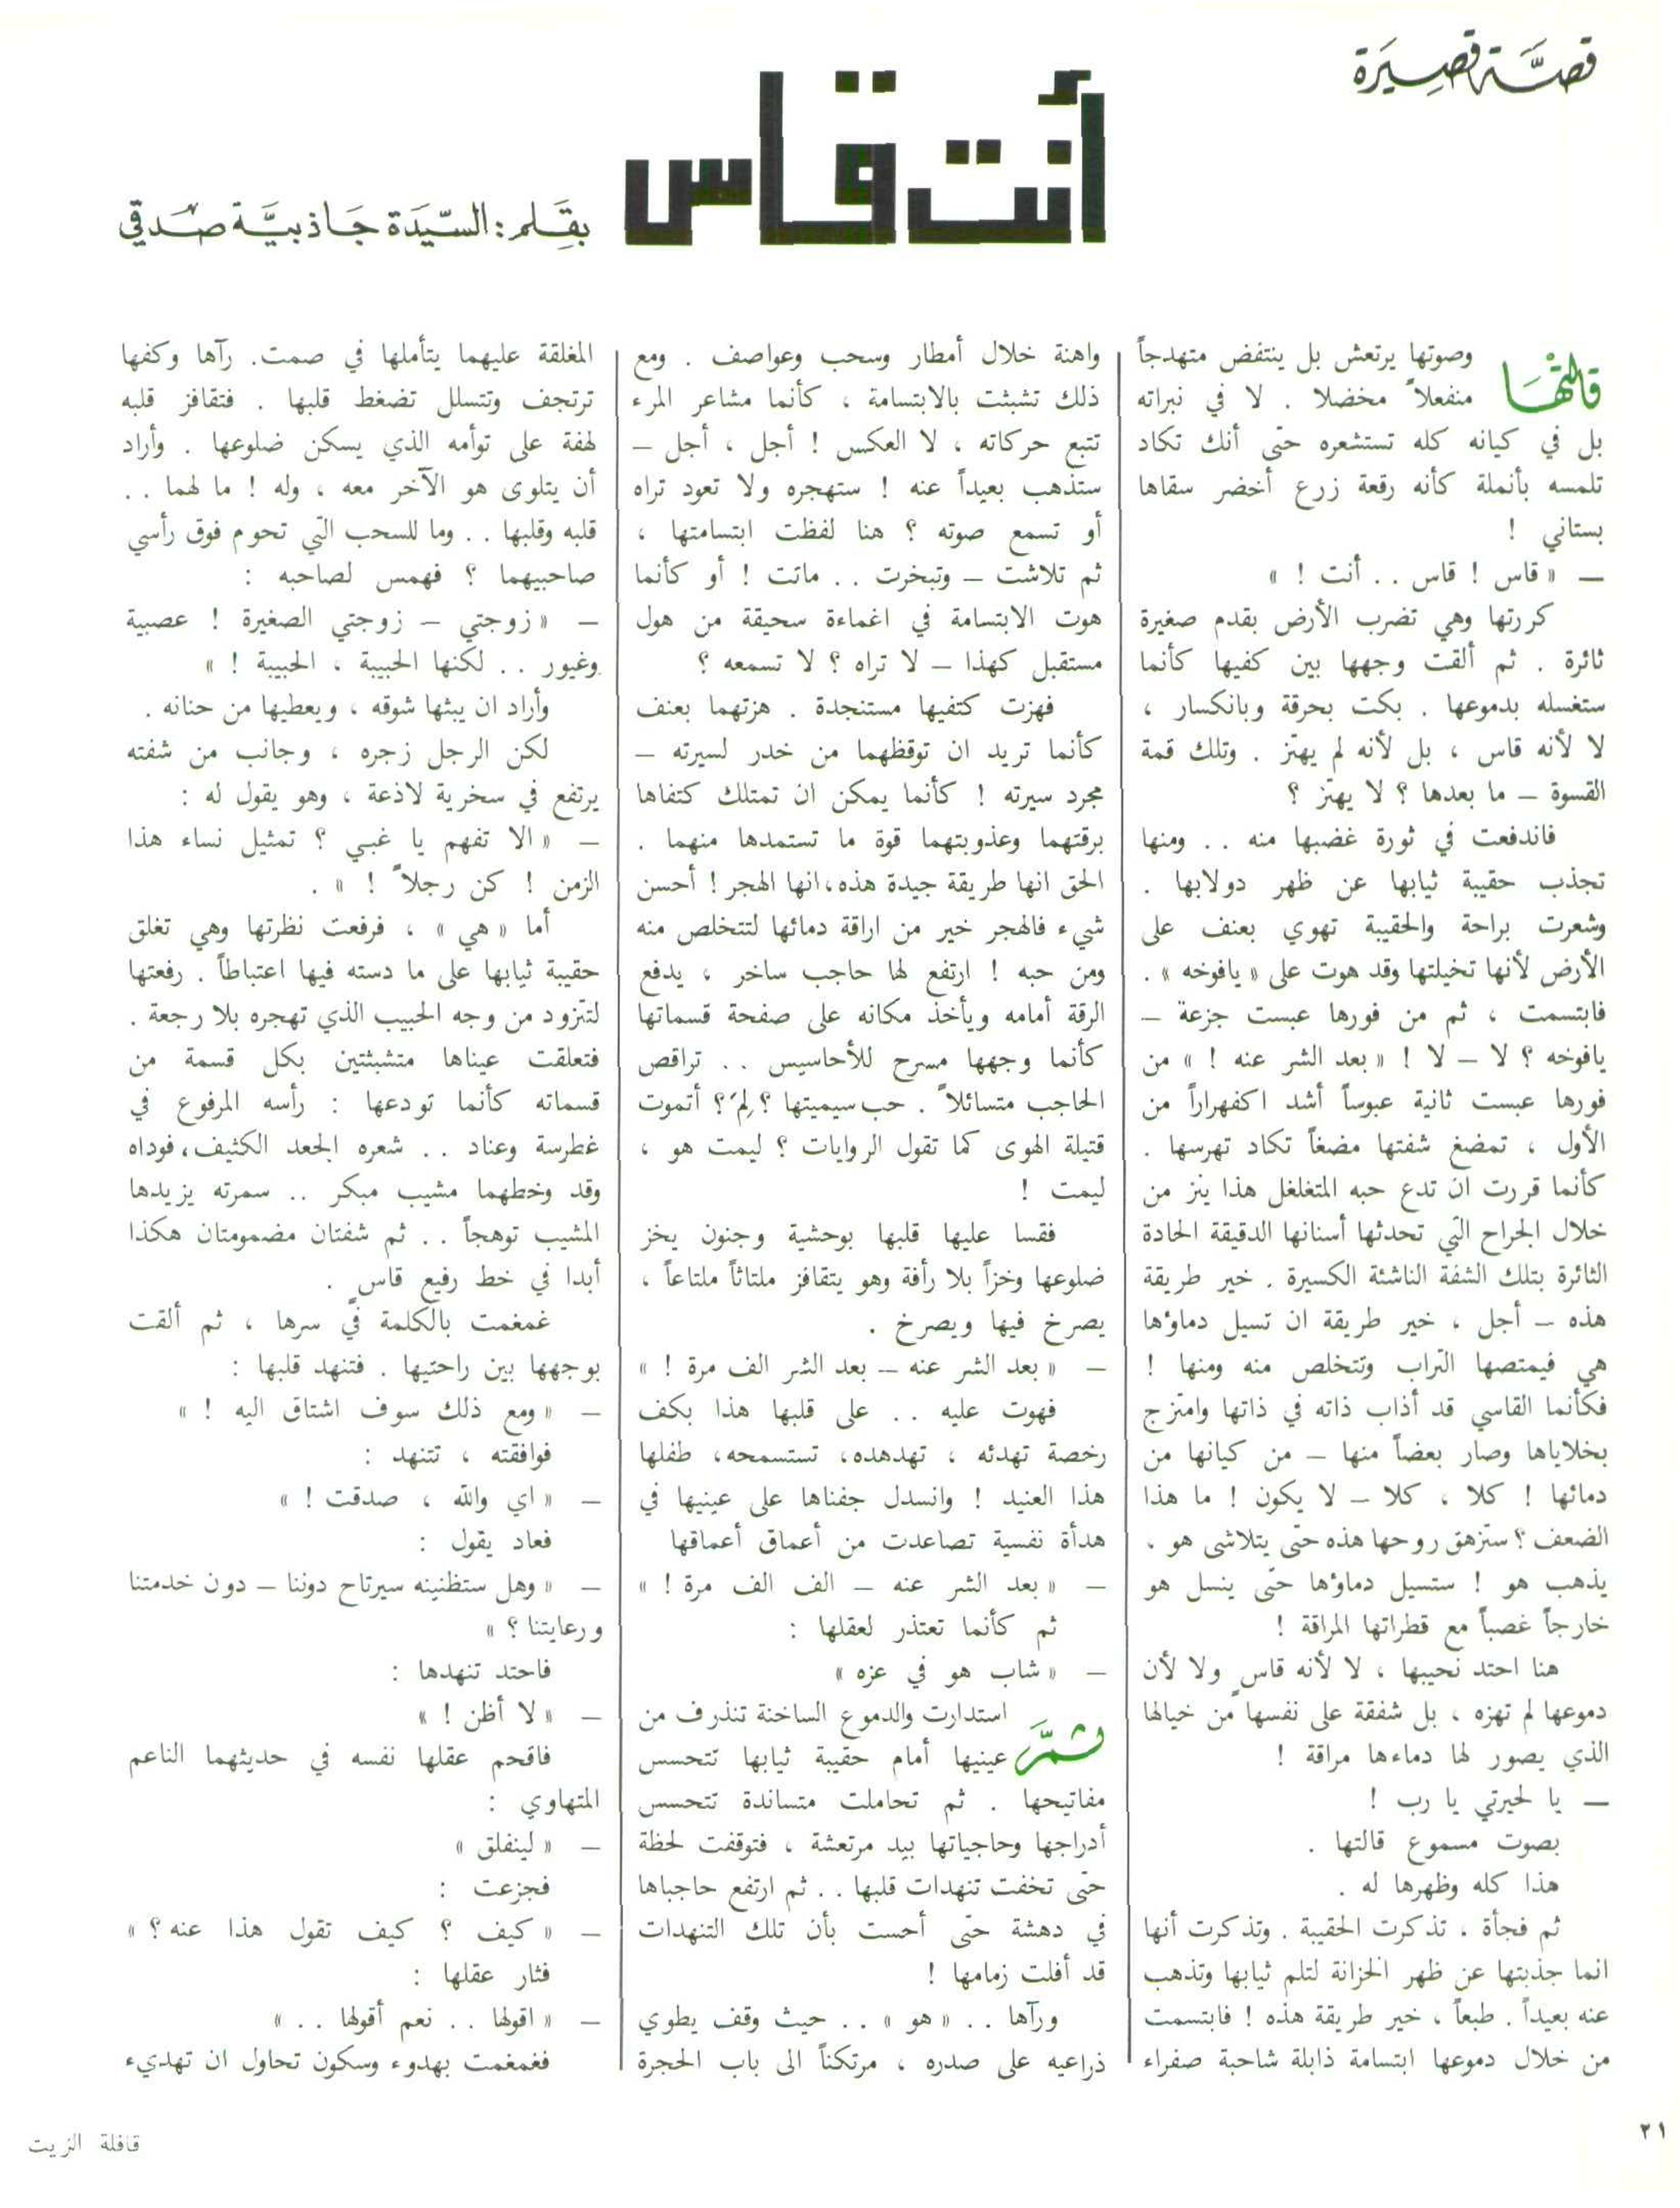 قصة قصيرة
أنت قاس
بقلم: السيدة جاذبية صدقي
قالتها وصوتها يرتعش بل ينتفض متهدجاً
منفعلاً مخضلا . لا في نبراته
بل في كيانه كله تستشعره حتى أنك تكاد
تلمسه بأنملة كأنه رقعة زرع أخضر سقاها
بستاني !
— « قاس ! قاس . . أنت ! »
كررتها وهي تضرب الأرض بقدم صغيرة
ثائرة . ثم ألقت وجهها بين كفيها كأنما
ستغسله بدموعها . بكت بحرقة وبانكسار ،
لا لأنه قاس ، بل لأنه لم يهتز . وتلك قمة
القسوة — ما بعدها ؟ لا يهتز ؟
فاندفعت في ثورة غضبها منه . . ومنها
تجذب حقيبة ثيابها عن ظهر دولابها .
وشعرت براحة والحقيبة تهوي بعنف على
الأرض لأنها تخيلتها وقد هوت على « يافوخه » .
فابتسمت ، ثم من فورها عبست جزعة —
يافوخه ؟ لا — لا ! « بعد الشر عنه ! » من
فورها عبست ثانية عبوساً أشد اكفهراراً من
الأول ، تمضغ شفتها مضغاً تكاد تهرسها .
كأنما قررت ان تدع حبه المتغلغل هذا ينز من
خلال الجراح التي تحدثها أسنانها الدقيقة الحادة
الثائرة بتلك الشفة الناشئة الكسيرة . خير طريقة
هذه — أجل ، خير طريقة ان تسيل دماؤها
هي فيمتصها التراب وتتخلص منه ومنها !
فكأنما القاسي قد أذاب ذاته في ذاتها وامتزج
بخلاياها وصار بعضاً منها — من كيانها من
دمائها ! كلا ، كلا — لا يكون ! ما هذا
الضعف ؟ ستزهق روحها هذه حتى يتلاشى هو ،
يذهب هو ! ستسيل دماؤها حتى ينسل هو
خارجاً غصباً مع قطراتها المراقة !
هنا احتد نحيبها ، لا لأنه قاسٍ ولا لأن
دموعها لم تهزه ، بل شفقة على نفسها من خيالها
الذي يصور لها دماءها مراقة !
— يا لحيرتي يا رب !
بصوت مسموع قالتها .
هذا كله وظهرها له .
ثم فجأة ، تذكرت الحقيبة . وتذكرت أنها
انما جذبتها عن ظهر الخزانة لتلم ثيابها وتذهب
عنه بعيداً . طبعاً ، خير طريقة هذه ! فابتسمت
من خلال دموعها ابتسامة ذابلة شاحبة صفراء
واهنة خلال أمطار وسحب وعواصف . ومع
ذلك تشبثت بالابتسامة ، كأنما مشاعر المرء
تتبع حركاته ، لا العكس ! أجل ، أجل —
ستذهب بعيداً عنه ! ستهجره ولا تعود تراه
أو تسمع صوته ؟ هنا لفظت ابتسامتها ،
ثم تلاشت — وتبخرت . . ماتت ! أو كأنما
هوت الابتسامة في اغماءة سحيقة من هول
مستقبل كهذا — لا تراه ؟ لا تسمعه ؟
فهزت كتفيها مستنجدة . هزتهما بعنف
كأنما تريد ان توقظهما من خدر لسيرته —
مجرد سيرته ! كأنما يمكن ان تمتلك كتفاها
برقتهما وعذوبتهما قوة ما تستمدها منهما .
الحق انها طريقة جيدة هذه، انها الهجر ! أحسن
شيء فالهجر خير من اراقة دمائها لتتخلص منه
ومن حبه ! ارتفع لها حاجب ساخر ، يدفع
الرقة أمامه ويأخذ مكانه على صفحة قسماتها
كأنما وجهها مسرح للأحاسيس . . تراقص
الحاجب متسائلاً . حب سيميتها ؟ لِمَ ؟ أتموت
قتيلة الهوى كما تقول الروايات ؟ ليمت هو ،
ليمت !
فقسا عليها قلبها بوحشية وجنون يخز
ضلوعها وخزاً بلا رأفة وهو يتقافز ملتاثاً ملتاعاً ،
يصرخ فيها ويصرخ .
— « بعد الشر عنه — بعد الشر الف مرة ! »
فهوت عليه . . على قلبها هذا بكف
رخصة تهدئه ، تهدهده، تستسمحه، طفلها
هذا العنيد ! وانسدل جفناها على عينيها في
هدأة نفسية تصاعدت من أعماق أعماقها
— « بعد الشر عنه — الف الف مرة ! »
ثم كأنما تعتذر لعقلها :
— « شاب هو في عزه »
ثمّ استدارت والدموع الساخنة تنذرف من
عينيها أمام حقيبة ثيابها تتحسس
مفاتيحها . ثم تحاملت متساندة تتحسس
أدراجها وحاجياتها بيد مرتعشة ، فتوقفت لحظة
حتى تخفت تنهدات قلبها . . ثم ارتفع حاجباها
في دهشة حتى أحست بأن تلك التنهدات
قد أفلت زمامها !
ورآها . . « هو » . . حيث وقف يطوي
ذراعيه على صدره ، مرتكناً الى باب الحجرة
المغلقة عليهما يتأملها في صمت. رآها وكفها
ترتجف وتتسلل تضغط قلبها . فتقافز قلبه
لهفة على توأمه الذي يسكن ضلوعها . وأراد
أن يتلوى هو الآخر معه ، وله ! ما لهما . .
قلبه وقلبها . . وما للسحب التي تحوم فوق رأسي
صاحبيهما ؟ فهمس لصاحبه :
— « زوجتي — زوجتي الصغيرة ! عصبية
وغيور . . لكنها الحبيبة ، الحبيبة ! »
وأراد ان يبثها شوقه ، ويعطيها من حنانه .
لكن الرجل زجره ، وجانب من شفته
يرتفع في سخرية لاذعة ، وهو يقول له :
— « الا تفهم يا غبي ؟ تمثيل نساء هذا
الزمن ! كن رجلاً ! » .
أما « هي » ، فرفعت نظرتها وهي تغلق
حقيبة ثيابها على ما دسته فيها اعتباطاً . رفعتها
لتتزود من وجه الحبيب الذي تهجره بلا رجعة .
فتعلقت عيناها متشبثتين بكل قسمة من
قسماته كأنما تودعها : رأسه المرفوع في
غطرسة وعناد . . شعره الجعد الكثيف، فوداه
وقد وخطهما مشيب مبكر . . سمرته يزيدها
المشيب توهجاً . . ثم شفتان مضمومتان هكذا
أبدا في خط رفيع قاسٍ .
غمغمت بالكلمة في سرها ، ثم ألقت
بوجهها بين راحتيها . فتنهد قلبها :
— « ومع ذلك سوف اشتاق اليه ! »
فوافقته ، تتنهد :
— « اي والله ، صدقت ! »
فعاد يقول :
— « وهل ستظنينه سيرتاح دوننا — دون خدمتنا
ورعايتنا ؟ »
فاحتد تنهدها :
— « لا أظن ! »
فاقحم عقلها نفسه في حديثهما الناعم
المتهاوي :
— « لينفلق »
فجزعت :
— « كيف ؟ كيف تقول هذا عنه ؟ »
فثار عقلها :
— « اقولها . . نعم أقولها . . »
فغمغمت بهدوء وسكون تحاول ان تهديء
٢١
قافلة الزيت